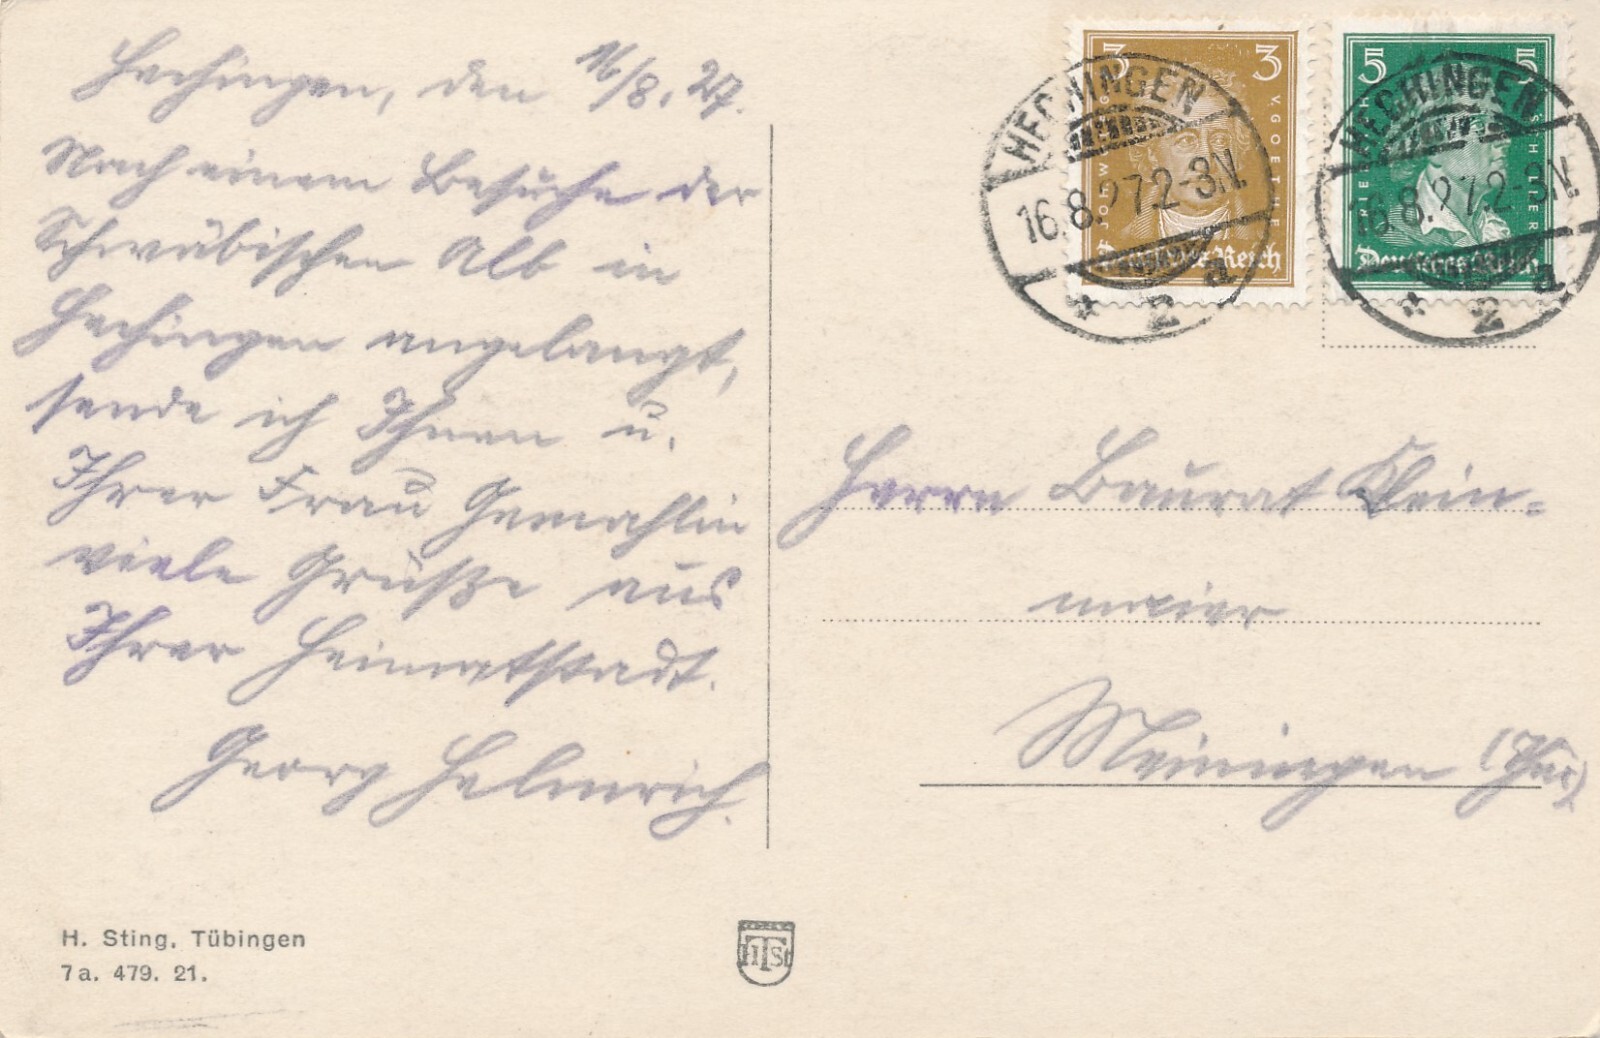 Hechingen, den 16/8. 27.
Nach einem Besuche der
Schwäbischen Alb in
Hechingen angelangt,
sende ich Ihnen u.
Ihrer Frau Gemahlin
viele Grüße aus
Ihrer Heimatstadt.
Georg Helmrich.
H. Sting, Tübingen
7a. 479. 21.
HTSt
3 3
JOH. WOLFG. V. GOETHE
Deutsches Reich
5 5
FRIEDRICH V. SCHILLER
Deutsches Reich
HECHINGEN
16.8.27.2-3N.
* 2 a
HECHINGEN
16.8.27.2-3N.
* 2 a
Herrn Baurat Klein-
maier
Meiningen (Thür.)